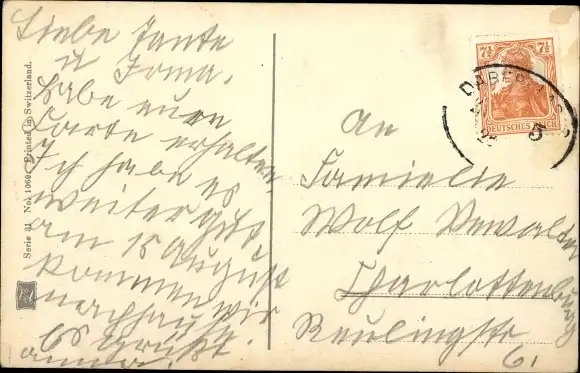 Liebe Tante
u Irma.
habe eure
Karte erhalten.
Ich habe es
weiter gut
am 15 August
kommen wir
nachhause
Es grüßt
Serie 81 No. 1069 Printed in Switzerland.
7½ 7½
DEUTSCHES REICH
DABER
An
Familie
Wolf
Charlottenburg
61